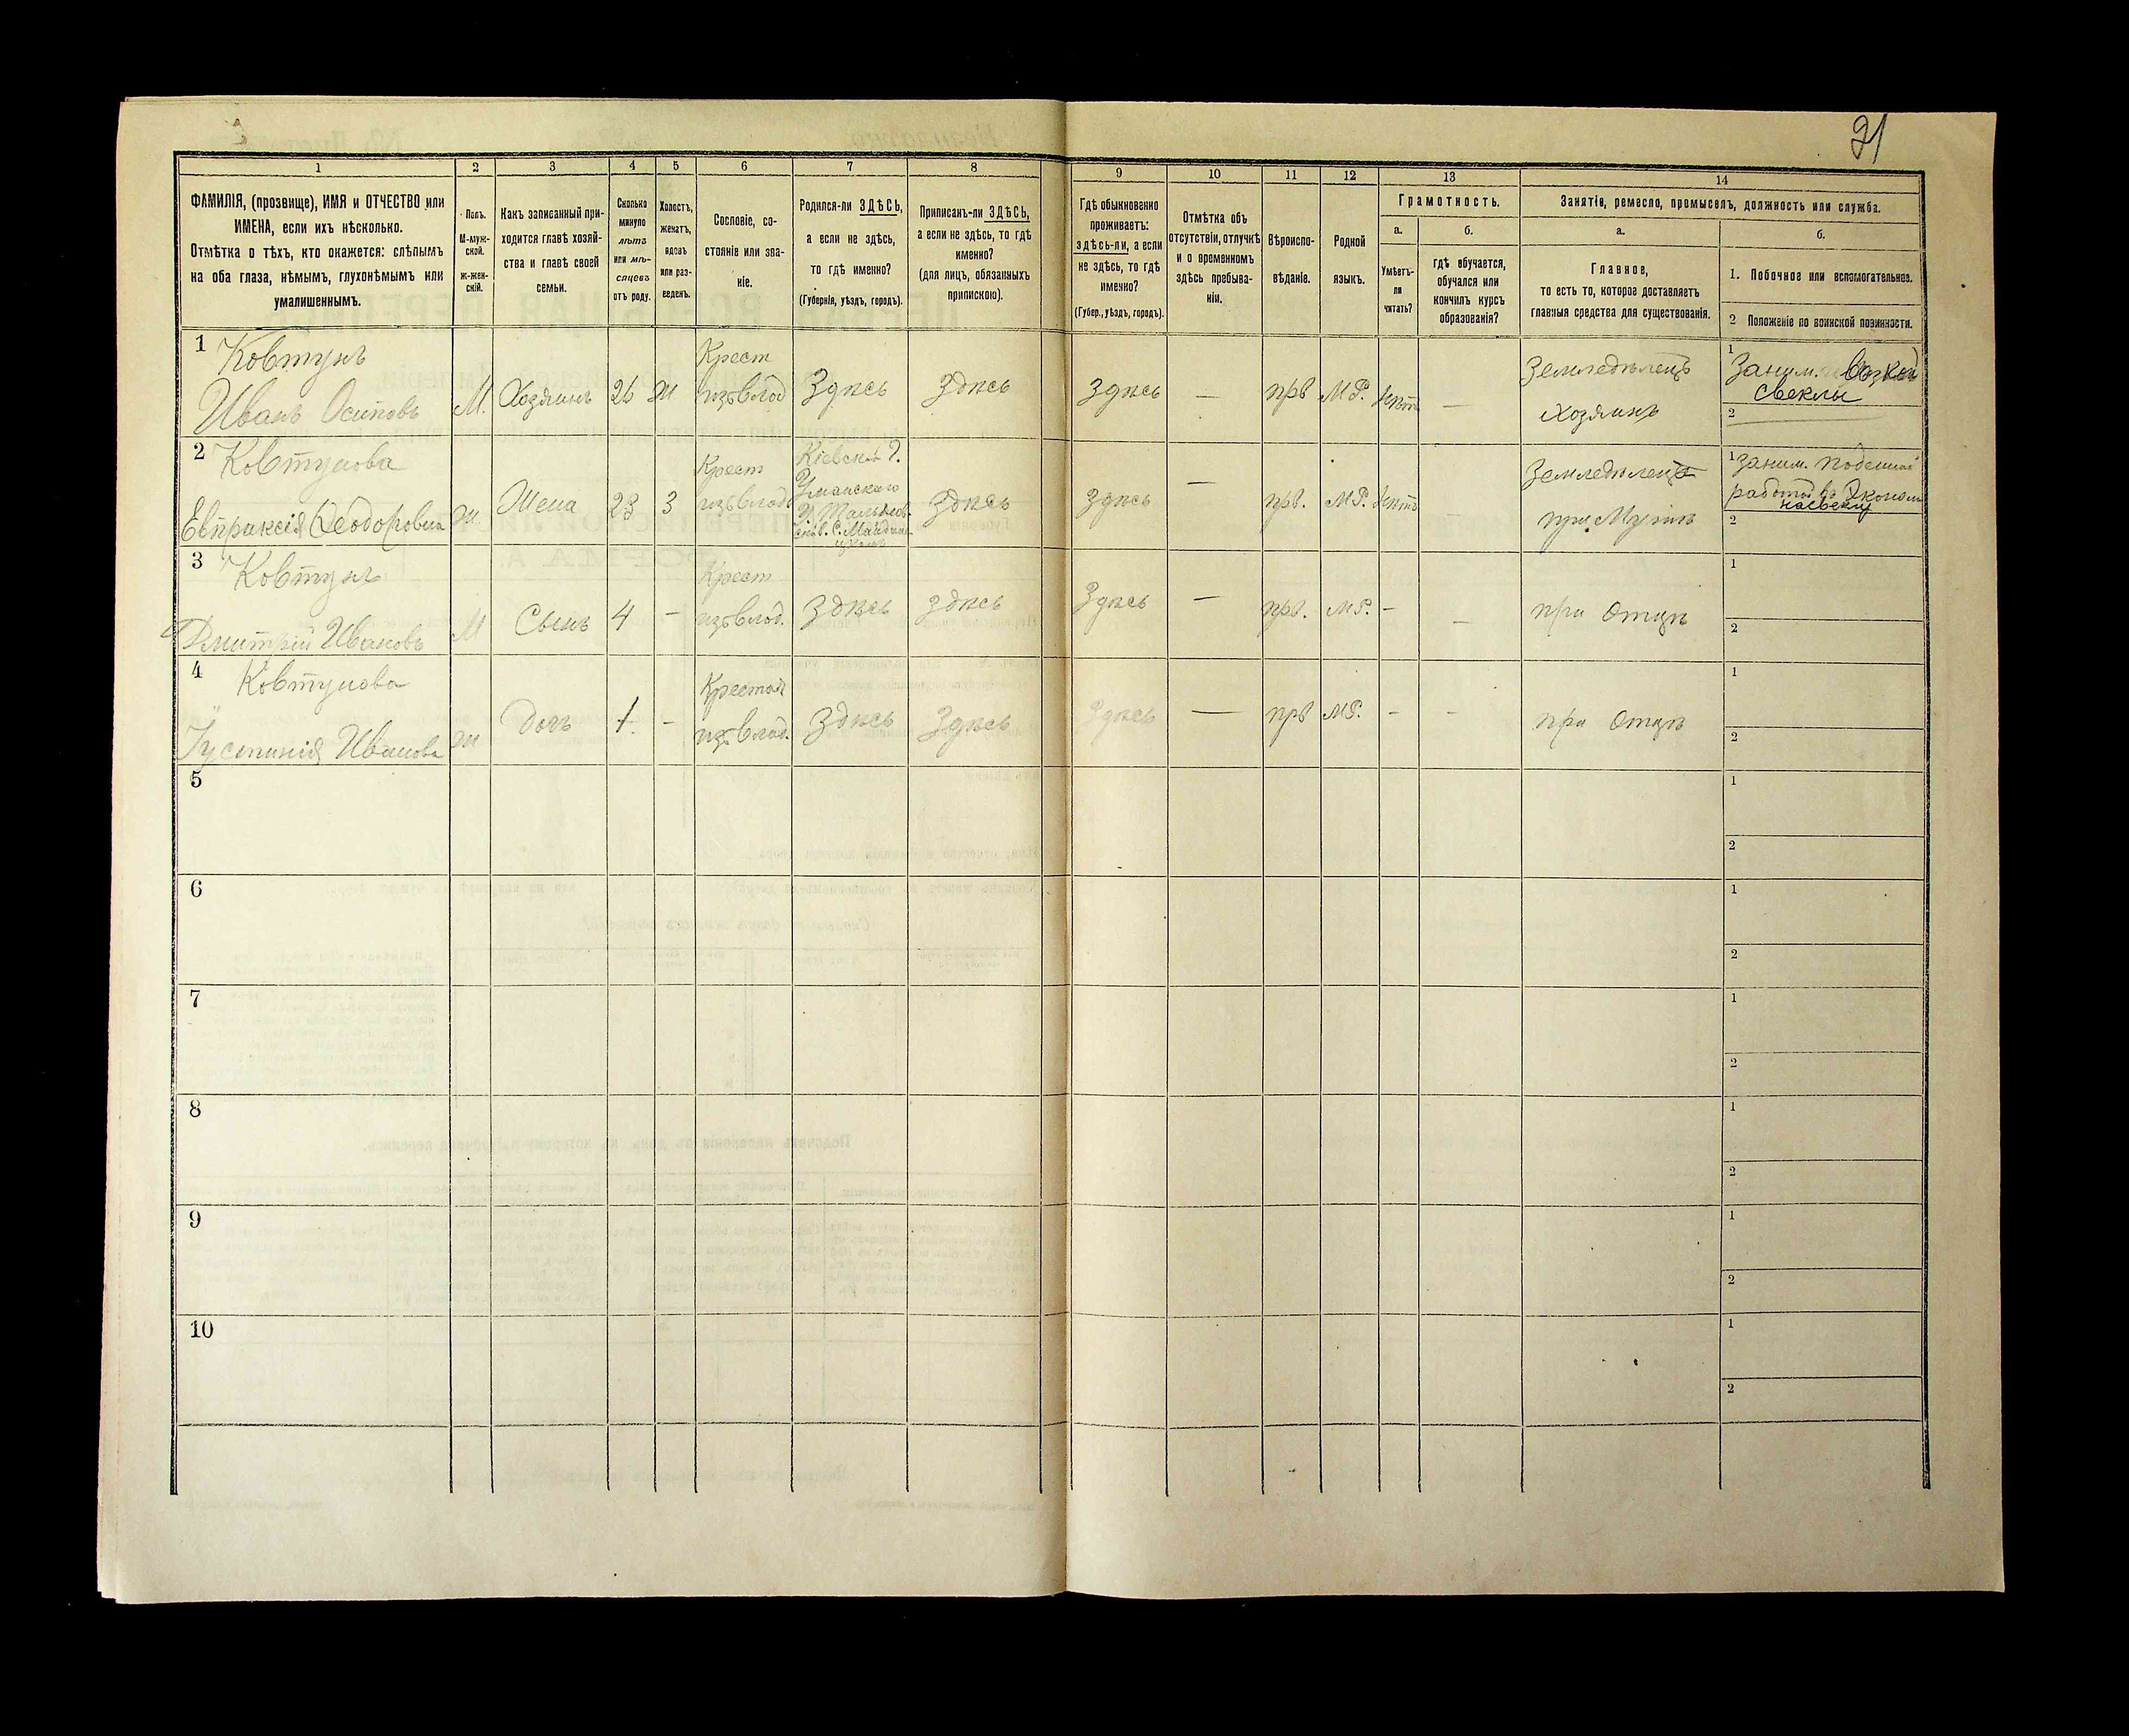 21
1
2
3
4
5
6
7
8
9
10
11
12
13
14
ФАМИЛІЯ, (прозвище), ИМЯ и ОТЧЕСТВО или
ИМЕНА, если ихъ нѣсколько.
Отмѣтка о тѣхъ, кто окажется: слѣпымъ
на оба глаза, нѣмымъ, глухонѣмымъ или
умалишеннымъ.
Полъ.
М-муж-
ской.
ж-жен-
скій.
Какъ записанный при-
ходится главѣ хозяй-
ства и главѣ своей
семьи.
Сколько
минуло
лѣтъ
или мѣ-
сяцевъ
отъ роду.
Холостъ,
женатъ,
вдовъ
или раз-
веденъ.
Сословіе, со-
стояніе или зва-
ніе.
Родился-ли ЗДѢСЬ,
а если не здѣсь,
то гдѣ именно?
(Губернія, уѣздъ, городъ).
Приписанъ-ли ЗДѢСЬ,
а если не здѣсь, то гдѣ
именно?
(для лицъ, обязанныхъ
припискою).
Гдѣ обыкновенно
проживаетъ:
здѣсь-ли, а если
не здѣсь, то гдѣ
именно?
(Губер., уѣздъ, городъ).
Отмѣтка объ
отсутствіи, отлучкѣ
и о временномъ
здѣсь пребыва-
ніи.
Вѣроиспо-
вѣданіе.
Родной
языкъ.
Грамотность.
а.
Умѣетъ-
ли
читать?
б.
гдѣ обучается,
обучался или
кончилъ курсъ
образованія?
Занятіе, ремесло, промыселъ, должность или служба.
а.
Главное,
то есть то, которое доставляетъ
главныя средства для существованія.
б.
1. Побочное или вспомогательное.
2 Положеніе по воинской повинности.
1
Ковтунъ
Иванъ Осиповъ
М.
Хозяинъ
26
ж
Крест
изъ влад
Здѣсь
Здѣсь
Здѣсь
—
прв
М.Р.
нѣтъ
—
Земледѣлецъ
Хозяинъ
1
Заним. возкой
свеклы
2
2
Ковтунова
Евпраксія Ѳеодоровна
ж
Жена
23
з
Крест
изъ влад
Кіевской г.
Уманскаго
у. Тальнов-
ской в. с. Майдане-
Здѣсь
Здѣсь
—
прв.
М.Р.
нѣтъ
Земледѣлецъ
при Мужѣ
1
Заним. поденной
работой въ Эконом
2
3
Ковтунъ
Дмитрій Ивановъ
М
Сынъ
4
—
Крест
изъ влад.
Здѣсь
Здѣсь
Здѣсь
—
прв.
М.Р.
—
—
при Отцѣ
1
2
4
Ковтунова
Іустинія Иванова
ж
Дочь
1
—
Крестьян
изъ влад.
Здѣсь
Здѣсь
Здѣсь
—
прв
М.Р.
—
—
при Отцѣ
1
2
5
1
2
6
1
2
7
1
2
8
1
2
9
1
2
10
1
2